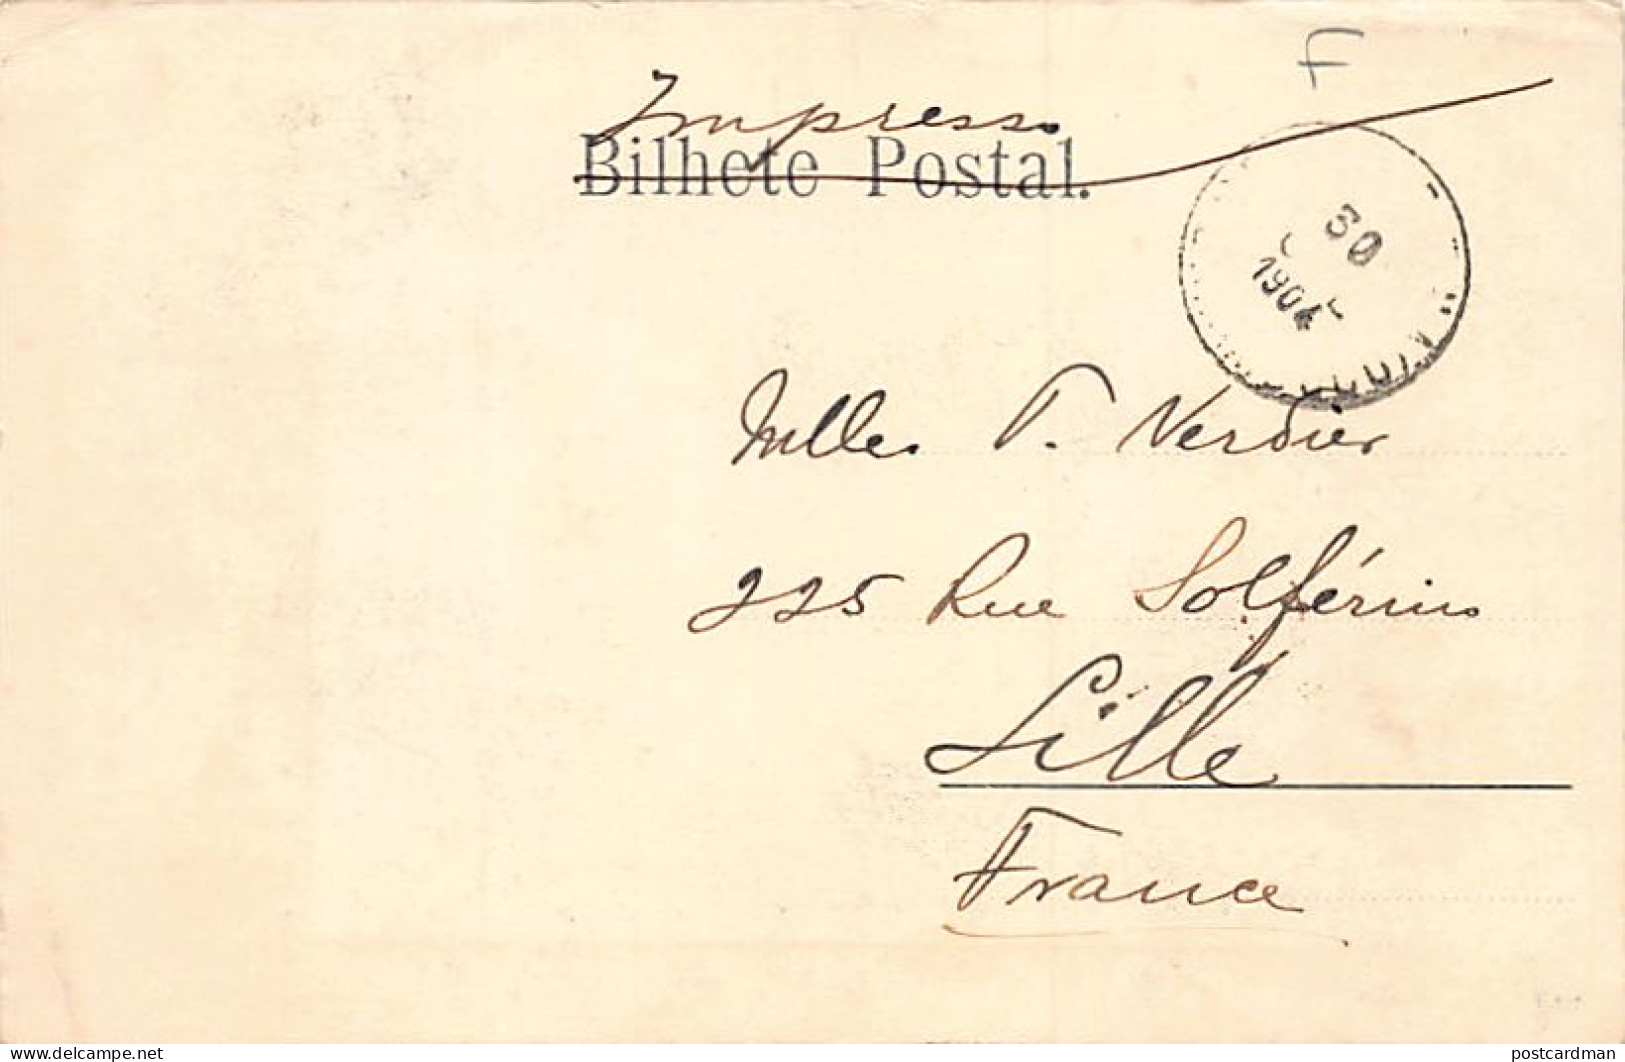 F
Impresso
Bilhete Postal.
30
1904
Mlle. T. Verdier
225 Rue Solférino
Lille
France
postcardman
www.delcampe.net